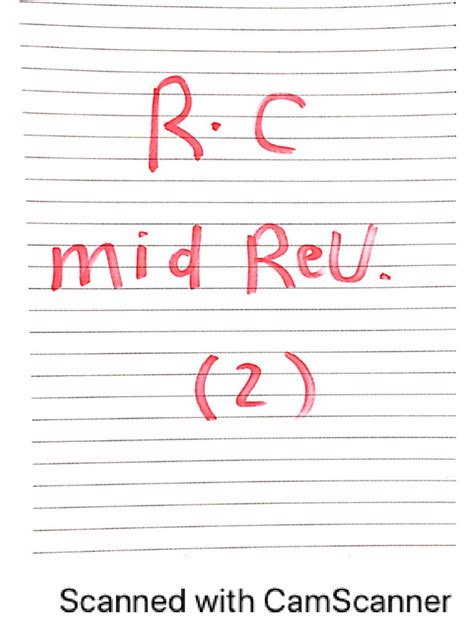 R. C
mid Rev.
(2)
Scanned with CamScanner